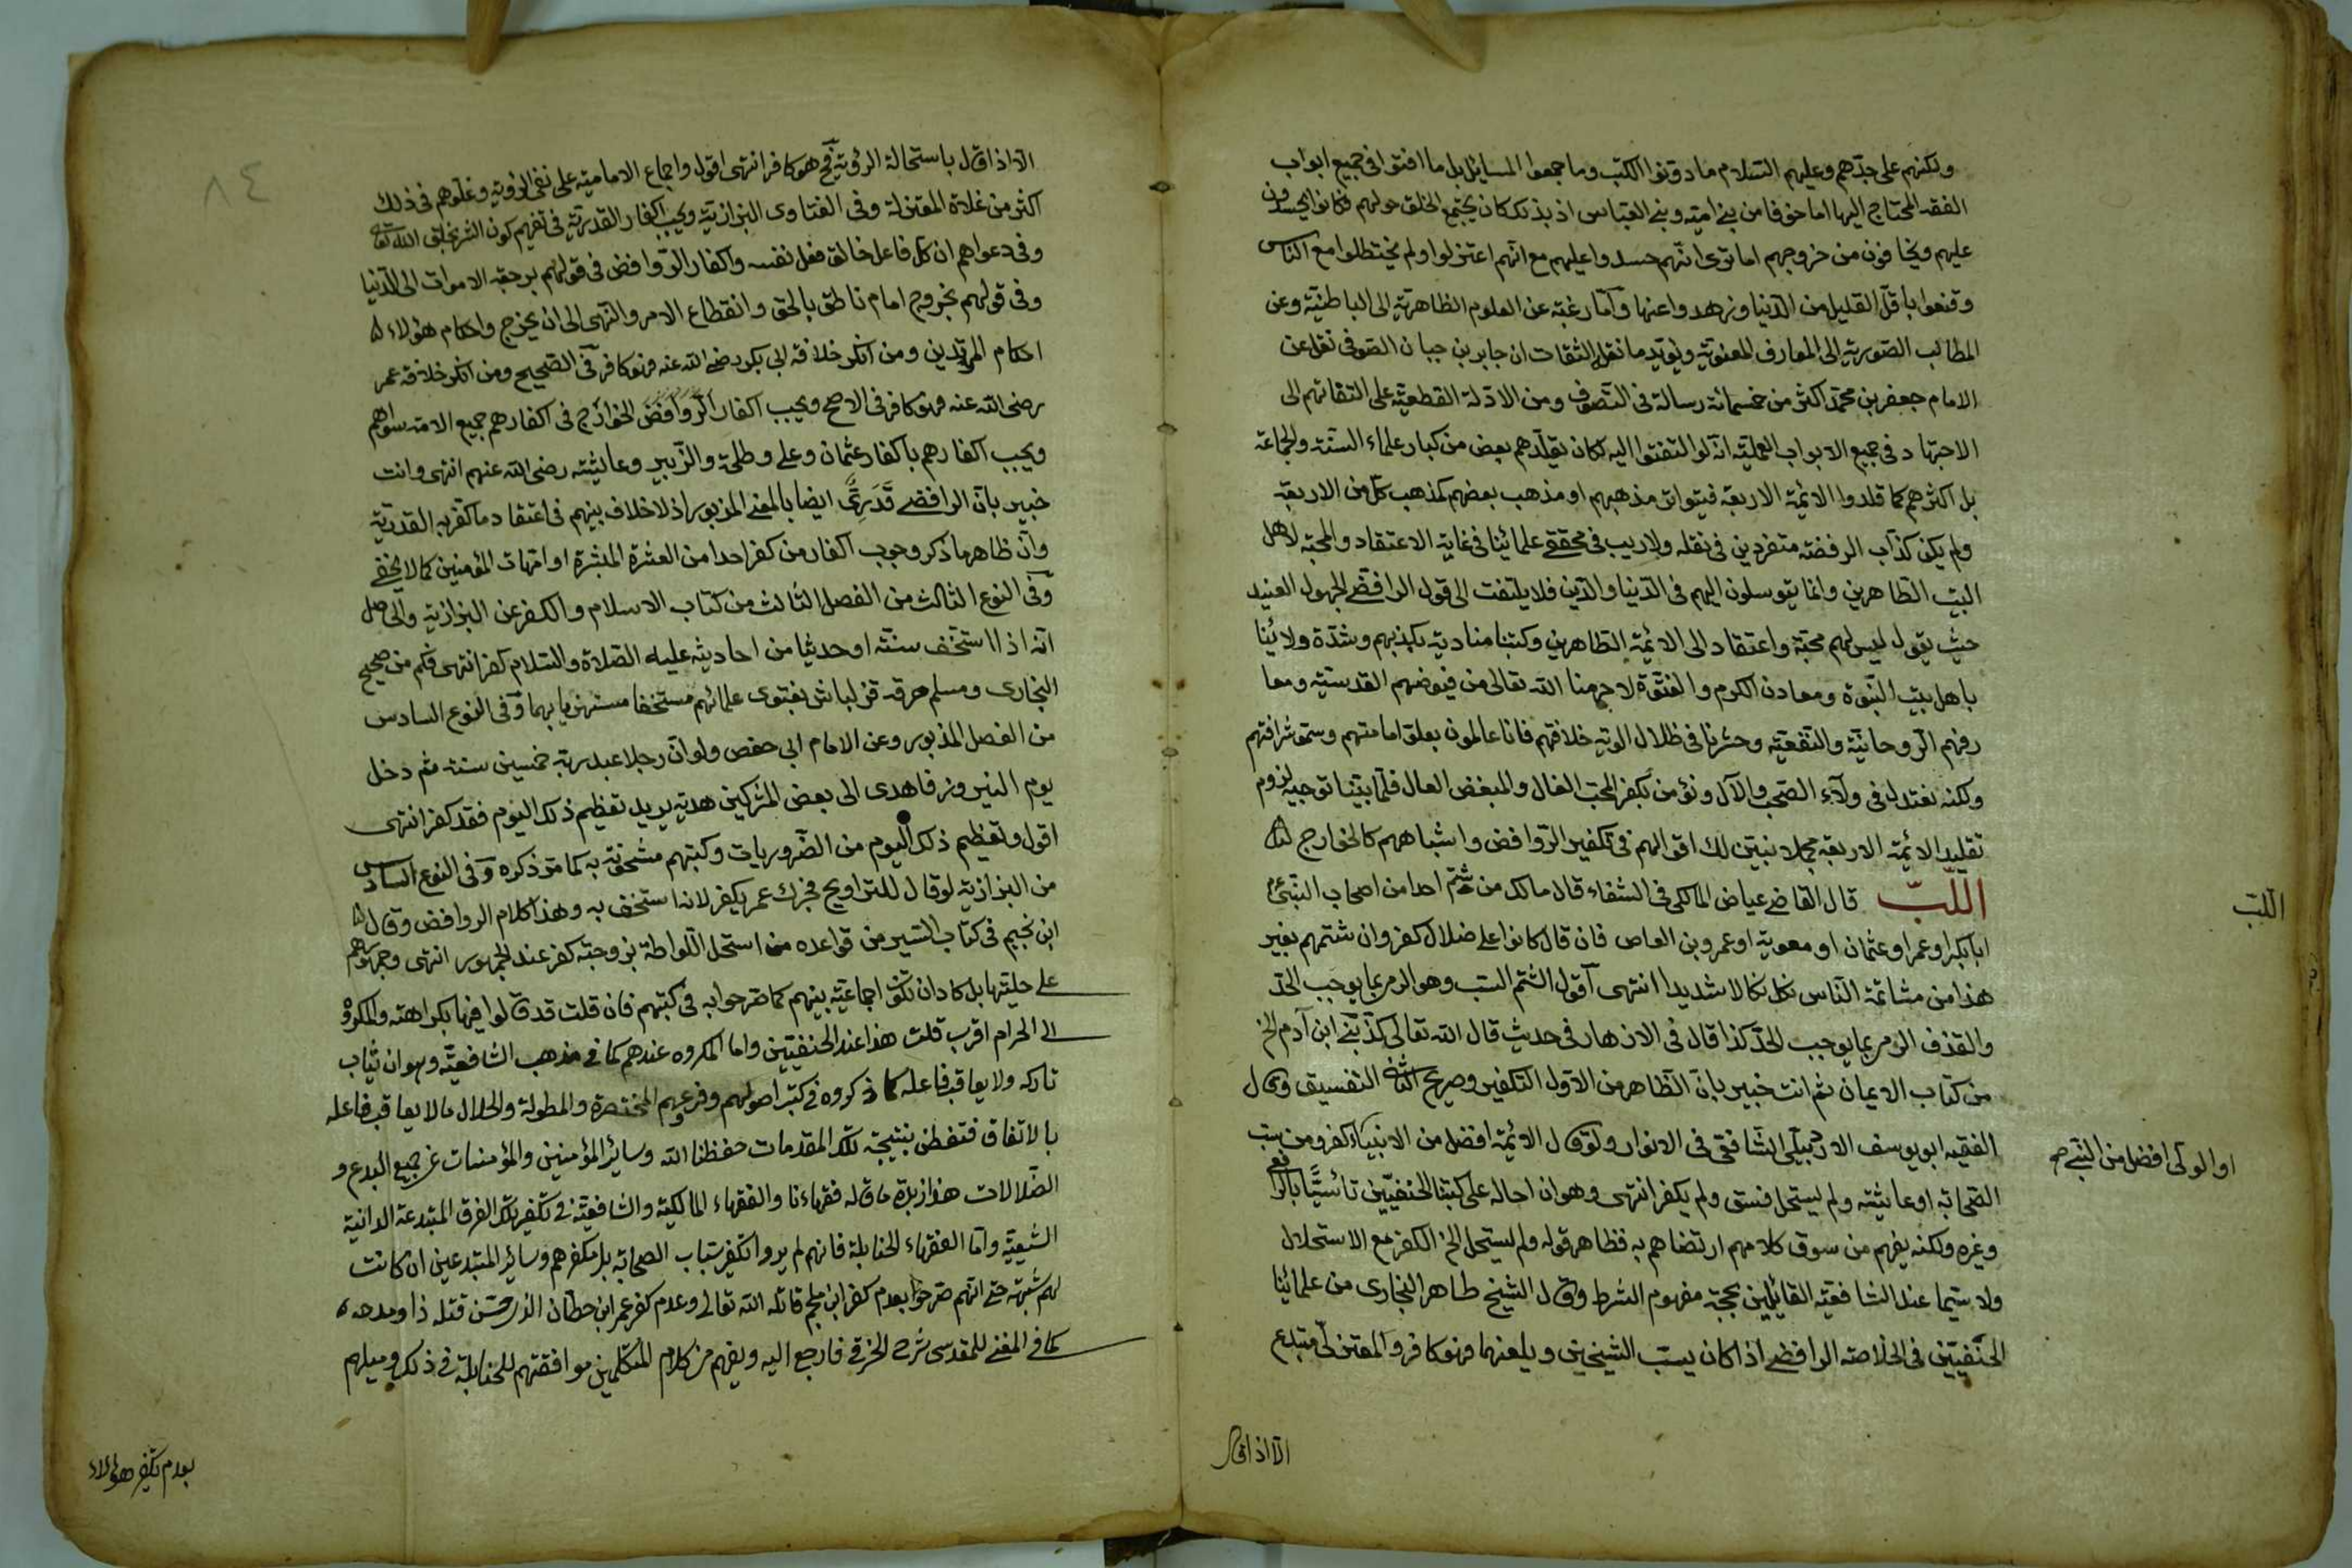 ولكنهم على جدهم وعليهم السلام ما دونوا الكتب وما جمعوا المسائل بل ما افتوا فى جميع ابواب
الفقه المحتاج اليها اما خوفا من بنى امية وبنى العباس اذ بذلك كان يجتمع الخلق حولهم فكانوا يحسدون
عليهم ويخافون من خروجهم اما ترى انهم حسدوا عليهم مع انهم اعتزلوا ولم يختلطوا مع الناس
وقنعوا باقل القليل من الدنيا وزهدوا عنها واما رغبة عن العلوم الظاهرية الى الباطنية وعن
المطالب الصورية الى المعارف المعنوية ويؤيد ما نقله الثقات ان جابر بن حيان الصوفى نقل عن
الامام جعفر بن محمد اكثر من خمسمائة رسالة فى التصوف ومن الادلة القطعية على التقاتهم الى
الاجتهاد فى جميع الابواب العملية انه لو التفتوا اليه لكان يقلدهم بعض من كبار علماء السنة والجماعة
بل اكثرهم كما قلدوا الائمة الاربعة فيتواتر مذهبهم او مذهب بعضهم كمذهب كل من الاربعة
ولم يكن كذاب الرفضة متفردين فى نقله ولا ريب فى محققى علمائنا فى غاية الاعتقاد والمحبة لاهل
البيت الطاهرين وانما يتوسلون اليهم فى الدنيا والدين فلا يلتفت الى قول الرافضى الجهول العنيد
حيث يقول ليس لهم محبة واعتقاد الى الائمة الطاهرين وكتبنا منادية بكذبهم وشدة ولائنا
باهل بيت النبوة ومعادن الكرم والفتوة لا حرمنا الله تعالى من فيوضهم القدسية ومعا
رفهم الروحانية والنقعية وحشرنا فى ظلال الوية خلافتهم فانا عالمون بعلو امامتهم وسمو شرافتهم
ولكنه نعتدل فى ولاء الصحب والآل ونؤمن بكفر المحب الغال والمبغض العال فلما بينا توجيه لزوم
تقليد الائمة الاربعة مجملا نبين لك اقوالهم فى تكفير الروافض واشباههم كالخوارج
السب قال القاضى عياض المالكى فى الشفاء قال مالك من شتم احدا من اصحاب النبى
ابابكر او عمر او عثمان او معوية او عمرو بن العاص فان قال كانوا على ضلال كفر وان شتمهم بغير
هذا من مشاتمة الناس نكل نكالا شديدا انتهى اقول الشتم السب وهو الرمى بما يوجب الحد
والقذف الرمى بما يوجب الحد كذا قال فى الازهار فى حديث قال الله تعالى كذبنى ابن آدم الخ
من كتاب الايمان ثم انت خبير بان الظاهر من الاول التكفير وصريح الثانى التفسيق وقال
الفقيه ابو يوسف الاردبيلى الشافعى فى الانوار ولو قال الائمة افضل من الانبياء كفر ومن سب
الصحابة او عائشة ولم يستحل فسق ولم يكفر انتهى وهو ان احاله على كتبنا الحنفيين تأسيا بالرافعى
وغيره ولكنه يفهم من سوق كلامهم ارتضاهم به فظاهر قوله ولم يستحل الخ الكفر مع الاستحلال
ولا سيما عند الشافعية القائلين بحجية مفهوم الشرط وقال الشيخ طاهر البخارى من علمائنا
الحنفيين فى الخلاصة الرافضى اذا كان يسب الشيخين ويلعنهما فهو كافر والمعتزلى مبتدع
السب
او الولى افضل من النبى صح
الا اذا قال
٨٤
الا اذا قال باستحالة الرؤية فح هو كافر انتهى اقول واجماع الامامية على نفى الرؤية وغلوهم فى ذلك
اكثر من غلاة المعتزلة وفى الفتاوى البزازية ويجب اكفار القدرية فى نفيهم كون الشر بخلق الله تعالى
وفى دعواهم ان كل فاعل خالق فعل نفسه واكفار الروافض فى قولهم برجعة الاموات الى الدنيا
وفى قولهم بخروج امام ناطق بالحق وانقطاع الامر والنهى الى ان يخرج واحكام هؤلاء
احكام المرتدين ومن انكر خلافة ابى بكر رضى الله عنه فهو كافر فى الصحيح ومن انكر خلافة عمر
رضى الله عنه فهو كافر فى الاصح ويجب اكفار الخوارج فى اكفارهم جميع الامة سواهم
ويجب اكفارهم باكفار عثمان وعلى وطلحة والزبير وعائشة رضى الله عنهم انتهى وانت
خبير بان الرافضى قدرى ايضا بالمعنى المزبور اذ لا خلاف بينهم فى اعتقاد ما كفر به القدرية
وان ظاهر ما ذكر وجوب اكفار من كفر احدا من العشرة المبشرة او امهات المؤمنين كما لا يخفى
وفى النوع الثالث من الفصل الثالث من كتاب الاسلام والكفر عن البزازية والحاصل
انه اذا استخف سنة او حديثا من احاديثه عليه الصلاة والسلام كفر انتهى فكم من صحيح
البخارى ومسلم حرقه قزلباش بفتوى علمائهم مستخفا مستهزيا بهما وفى النوع السادس
من الفصل المذبور وعن الامام ابى حفص ولو ان رجلا عبد ربه خمسين سنة ثم دخل
يوم النيروز فاهدى الى بعض المشركين هدية يريد تعظيم ذلك اليوم فقد كفر انتهى
اقول وتعظيم ذلك اليوم من الضروريات وكتبهم مشحونة به كما مر ذكره وفى النوع السادس
من البزازية لو قال للتراويح عمر يكفر لانه استخف به وهذا كلام الروافض وقال
ابن نجيم فى كتاب السير من قواعده من استحل اللواطة بزوجته كفر عند الجمهور انتهى وجمهورهم
على حليتها بل كاد ان تكون اجماعية بينهم كما صرحوا به فى كتبهم فان قلت قد قالوا فيها بكراهته والمكروه
الى الحرام اقرب قلت هذا عند الحنفيين واما المكروه عندهم كما فى مذهب الشافعية وهو ان يثاب
تاركه ولا يعاقب فاعله كما ذكروه فى كتب اصولهم وفروعهم المختصرة والمطولة والحلال ما لا يعاقب فاعله
بالاتفاق فتفطن بنتيجة تلك المقدمات حفظنا الله وسائر المؤمنين والمؤمنات عن جميع البدع و
الضلالات هذا زبدة ما قاله فقهاءنا والفقهاء المالكية والشافعية فى تكفير تلك الفرق المبتدعة الدانية
الشيعية واما الفقهاء الحنابلة فانهم لم يروا تكفير سباب الصحابة بل مكفرهم وسائر المبتدعين ان كانت
لهم شبهة حتى انهم صرحوا بعدم كفر ابن ملجم قاتله الله تعالى وعدم كفر عمر ابن حطان الذى حسن قتله ذا ومدحه
كما فى المغنى للمقدسى شرح الخرقى فارجع اليه ويفهم من كلام المتكلمين موافقتهم للحنابلة فى ذلك وميلهم
بعدم تكفير هؤلاء